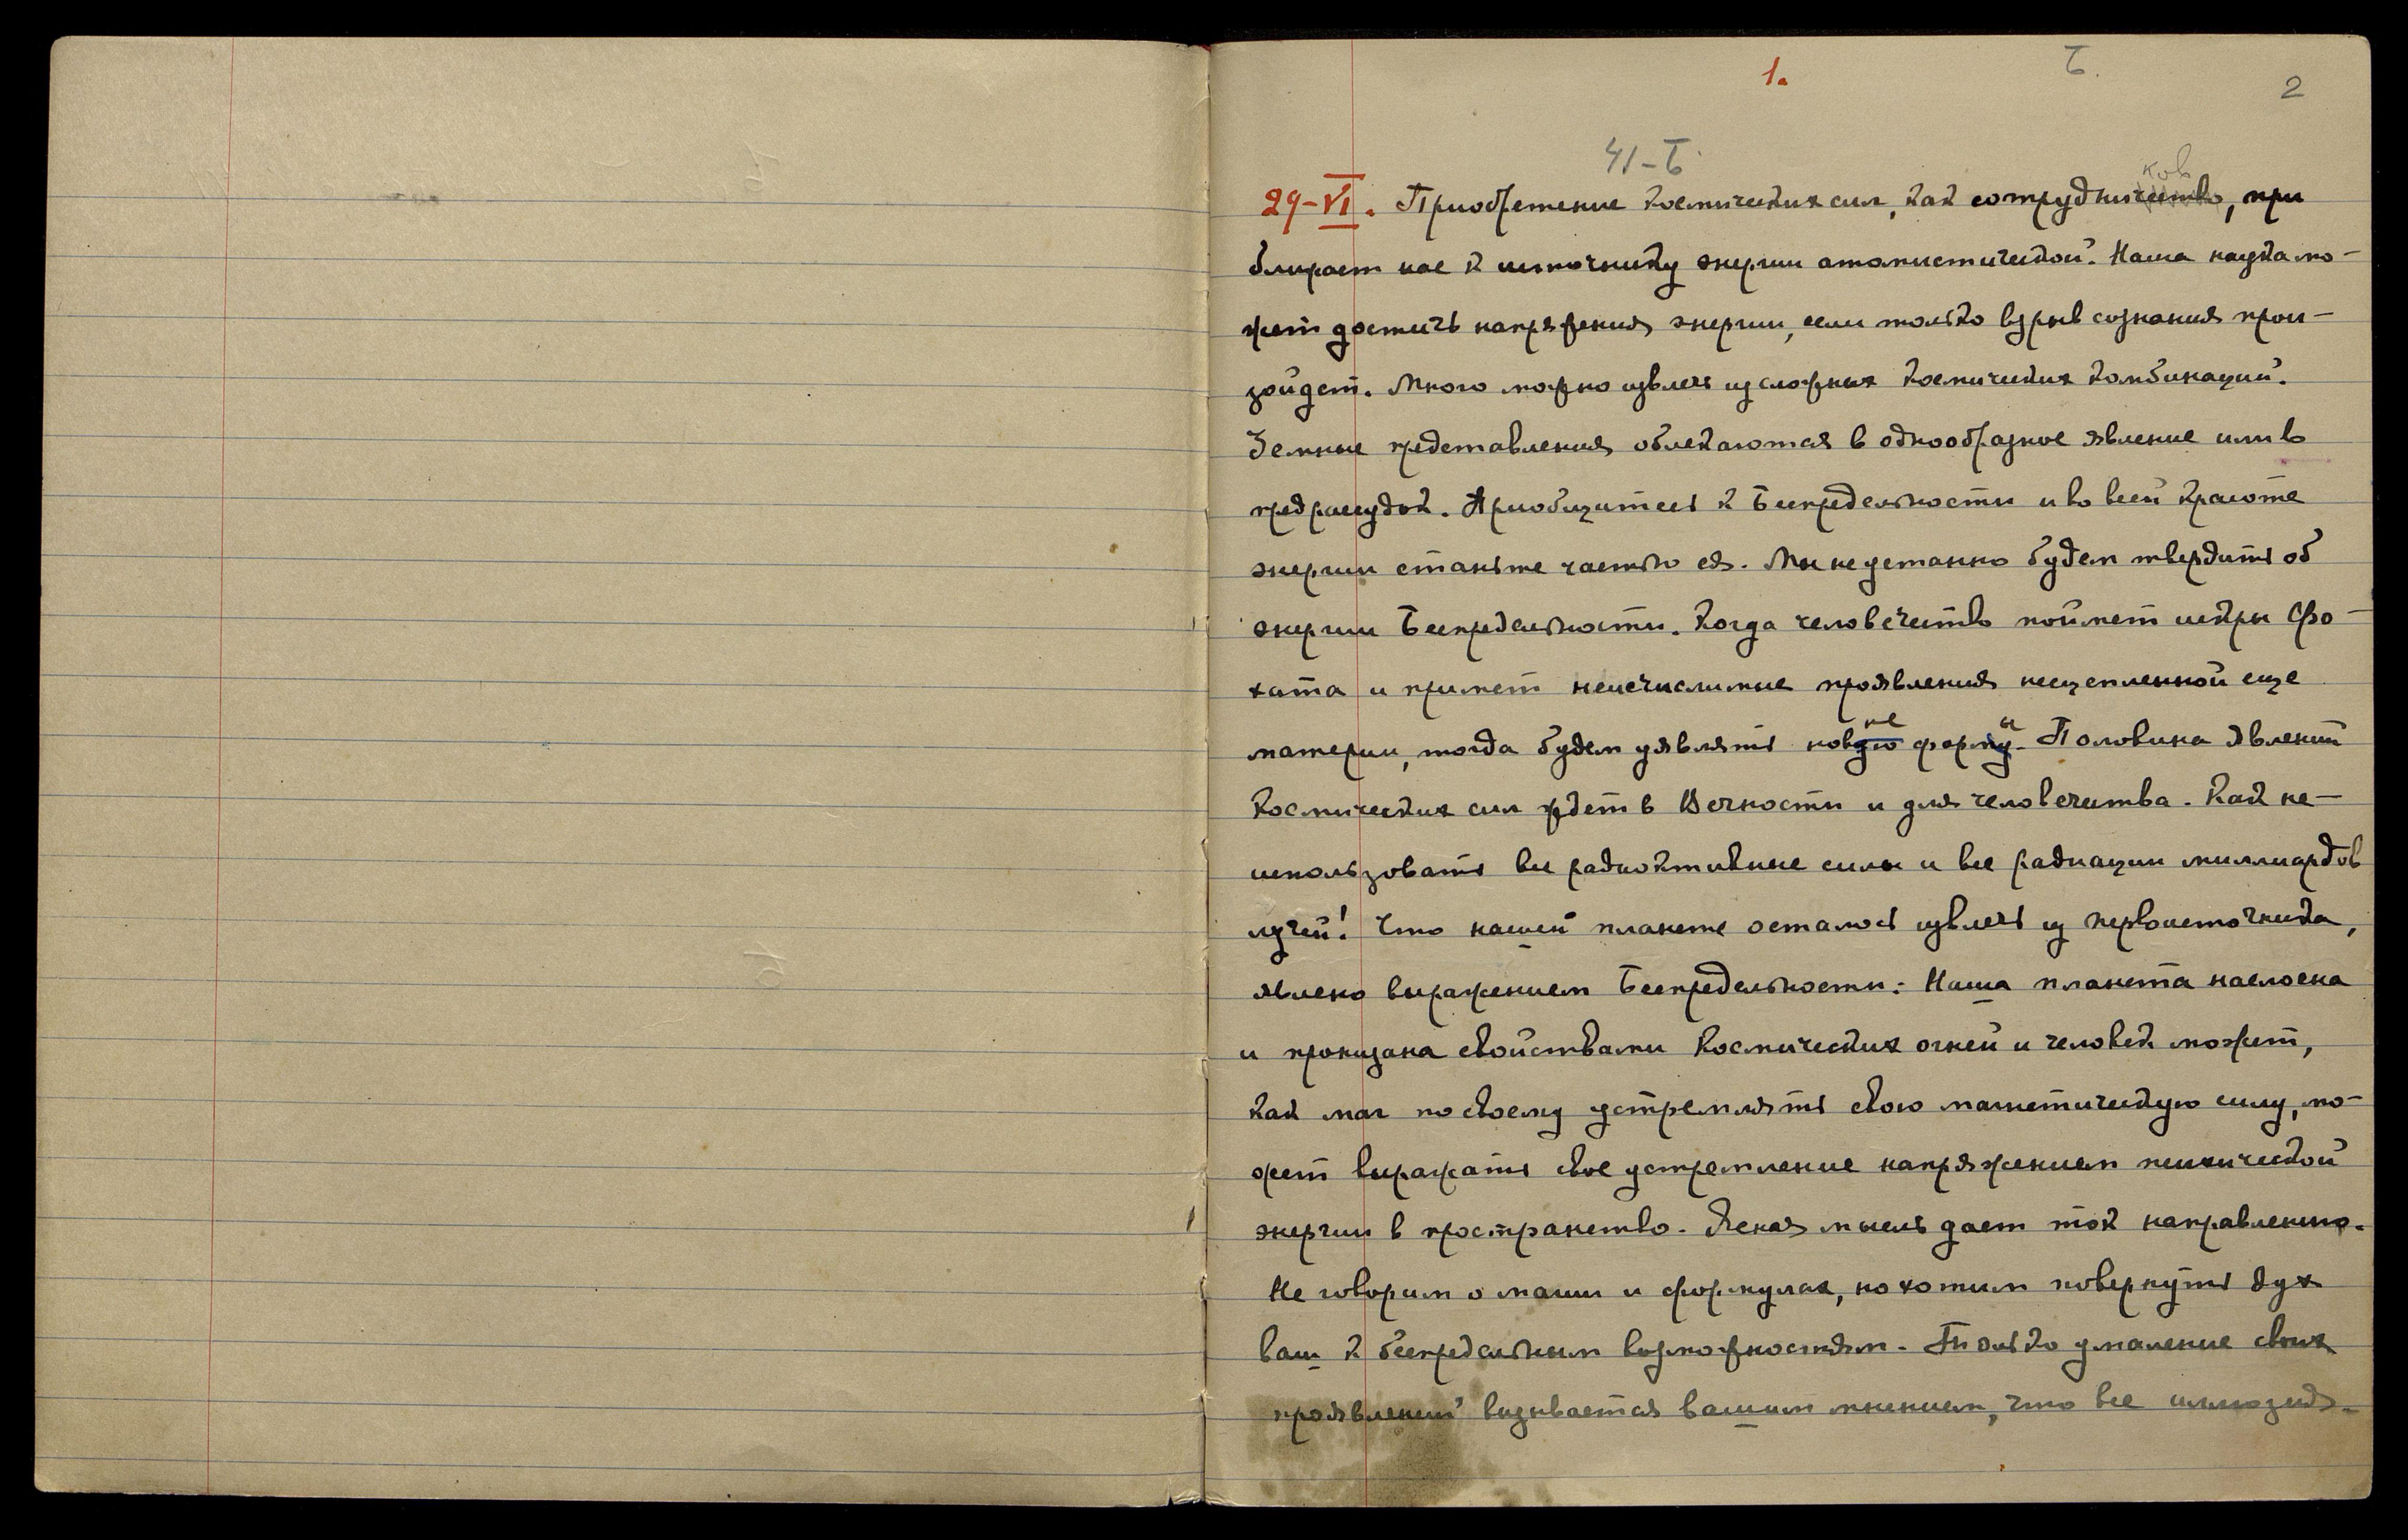 1.
Б.
2
41-Б
ков
29-VI. Приобретение космических сил, как сотрудничество, при
ближает нас к источнику энергии атомистической. Наша наука мо-
жет достичь напряжения энергии, если только взрыв сознания прои-
зойдет. Много можно извлечь из сложных космических комбинаций.
Земные представления облекаются в однообразное явление или в
предрассудок. Приобщитесь к Беспредельности и во всей красоте
энергии станьте частью ея. Мы неустанно будем твердить об
энергии Беспредельности. Когда человечество поймет искры Фо-
хата и примет неисчислимые проявления несцепленной еще
ые ы
материи, тогда будем уявлять новую форму. Половина явлений
Космических сил ждет в Вечности и для человечества. Как не-
использовать все радиоктивные силы и все радиации миллиардов
лучей! Что нашей планете осталось извлечь из первоисточника,
явлено выражением Беспредельности: Наша планета наслоена
и пронизана свойствами Космических огней и человек может,
как маг по своему устремлять свою магнетическую силу, мо-
жет выражать свое устремление напряжением психической
энергии в пространство. Ясная мысль дает ток направленно.
Не говорим о магии и формулах, но хотим повернуть дух
ваш к беспредельным возможностям. Только умаление своих
проявлений вызывается вашим мнением, что все иллюзия.